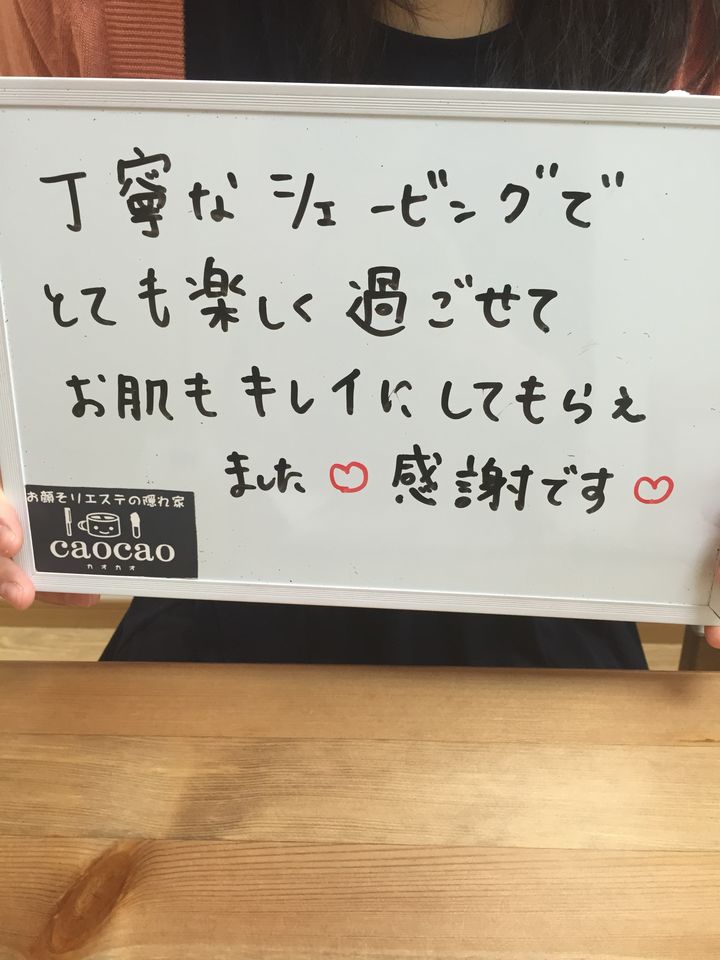 丁寧なシェービングで
とても楽しく過ごせて
お肌もキレイにしてもらえ
ました♡感謝です♡
お顔そりエステの隠れ家
caocao
カオカオ